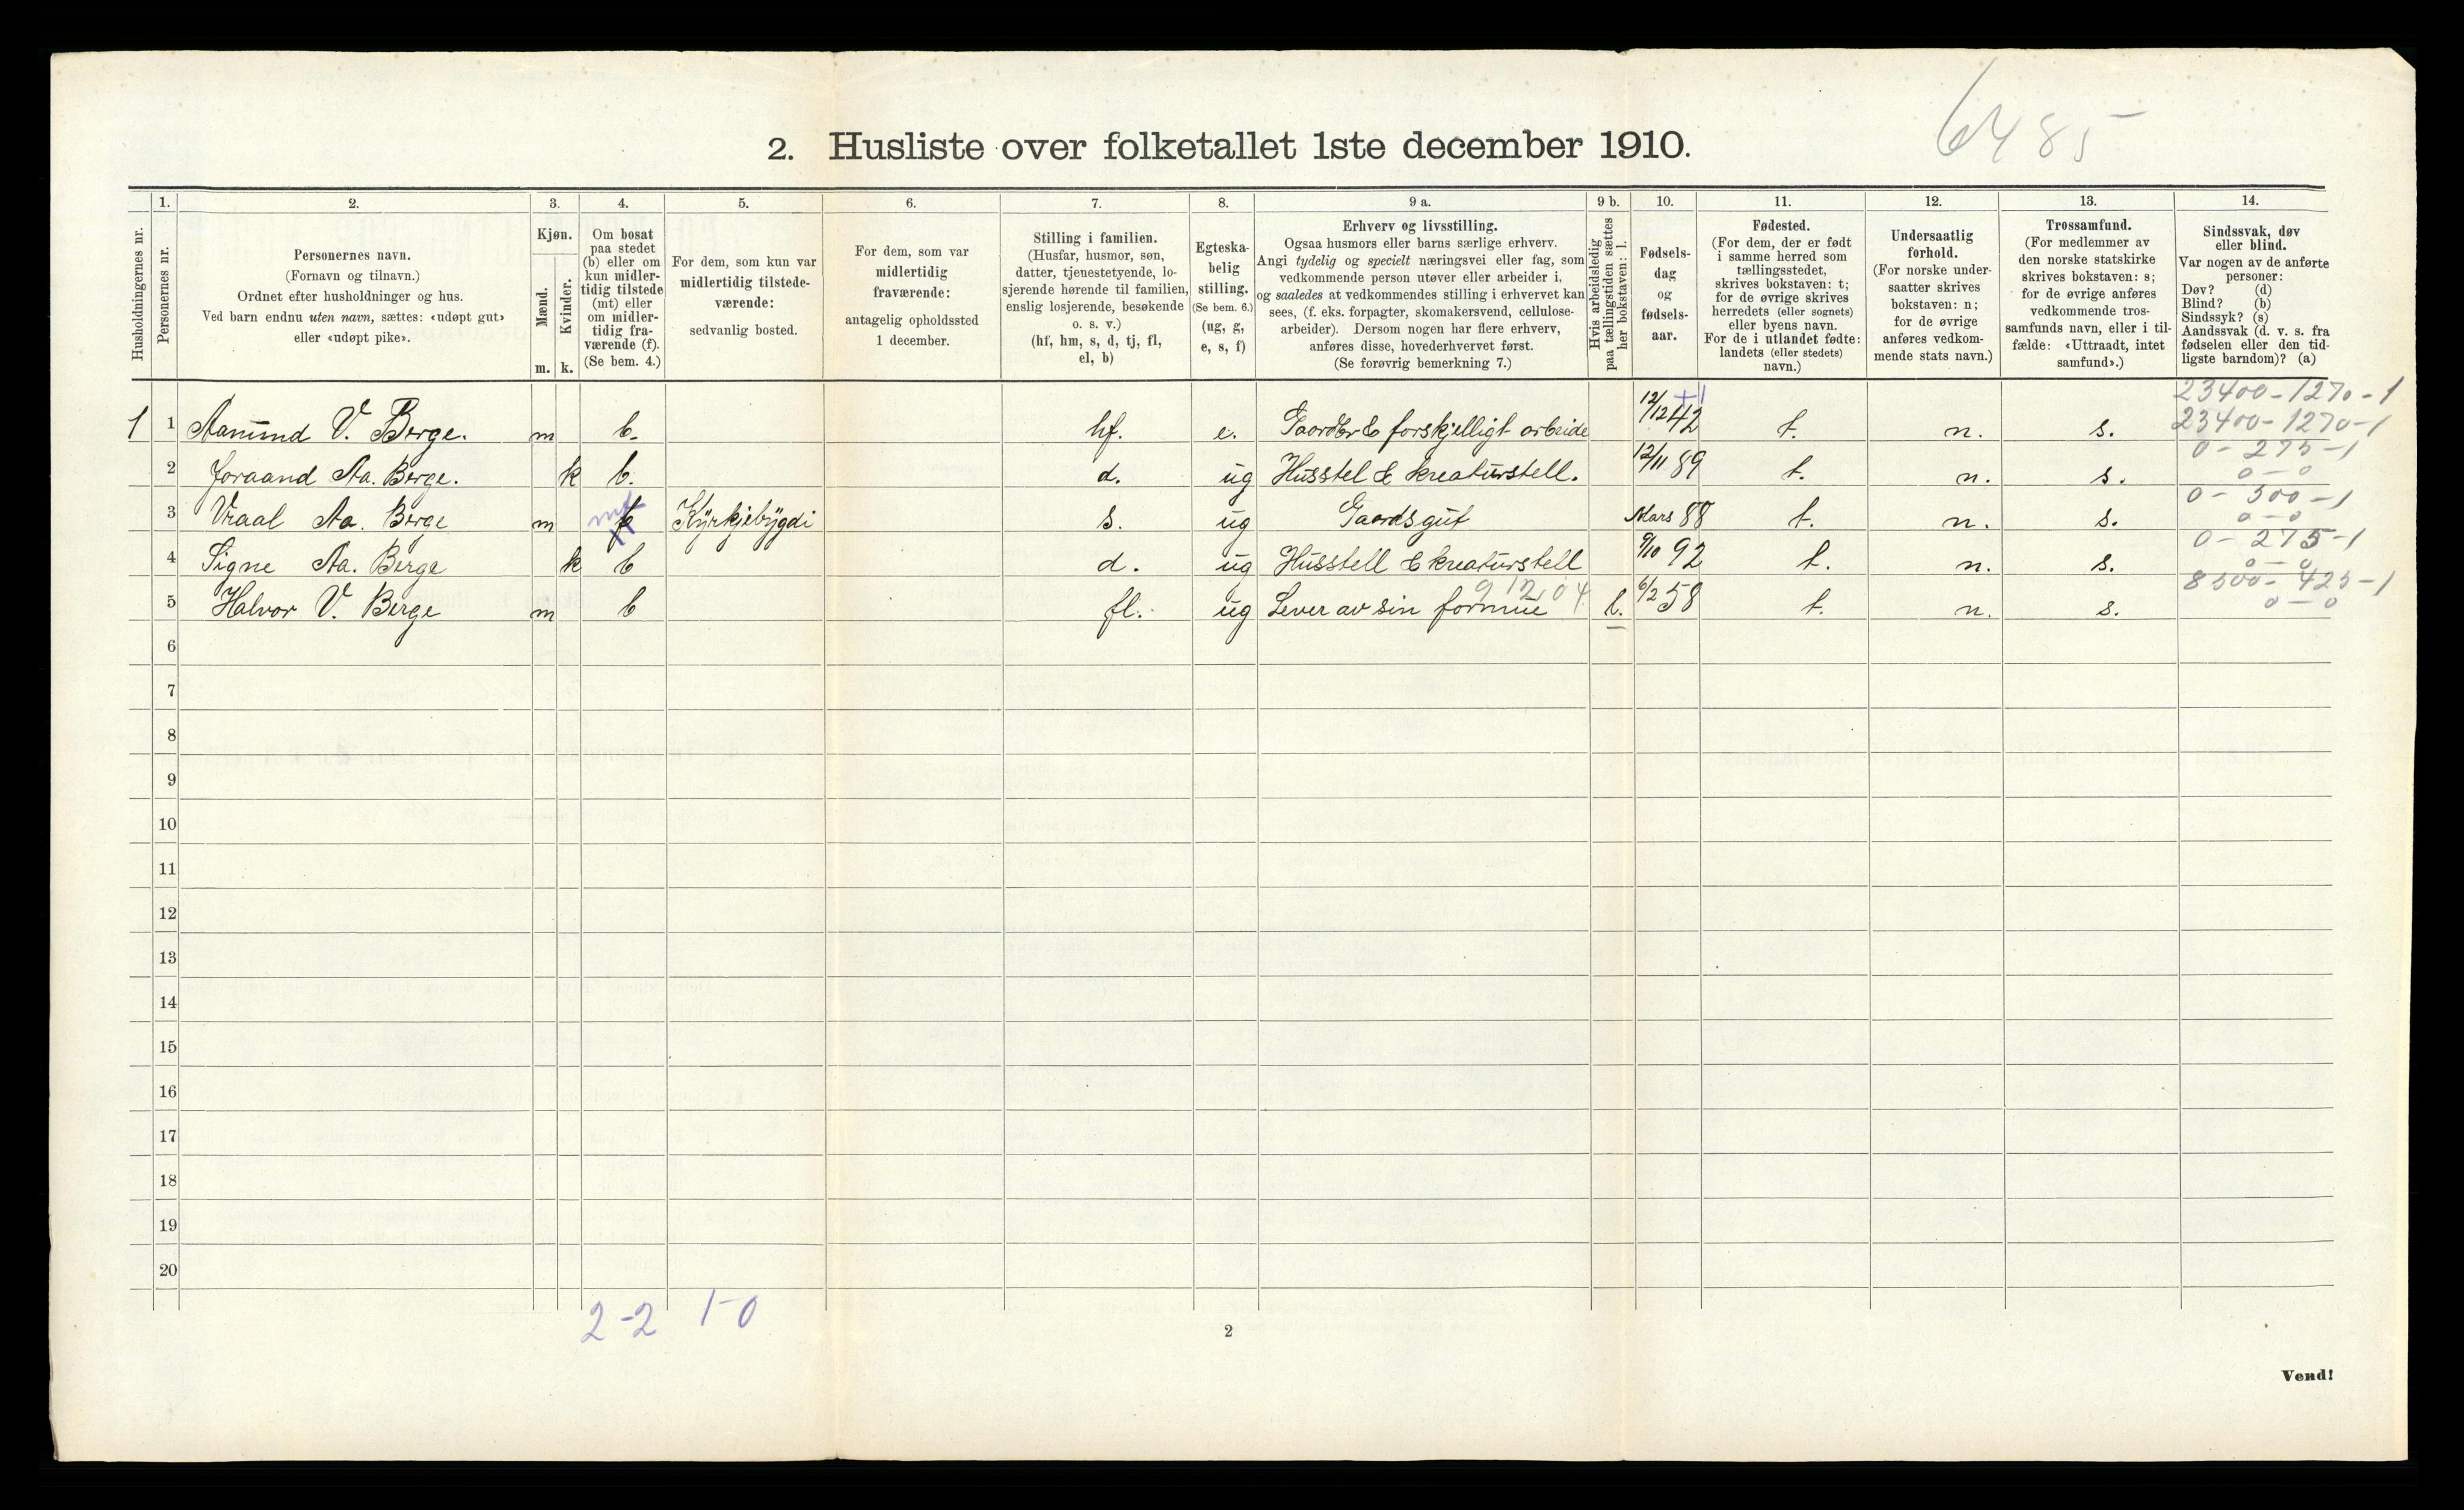 6485
2. Husliste over folketallet 1ste december 1910.
Husholdningernes nr.
1.
Personernes nr.
2.
Personernes navn.
(Fornavn og tilnavn.)
Ordnet efter husholdninger og hus.
Ved barn endnu uten navn, sættes: «udøpt gut»
eller «udøpt pike».
3.
Kjøn.
Mænd.
Kvinder.
m. k.
4.
Om bosat
paa stedet
(b) eller om
kun midler-
tidig tilstede
(mt) eller
om midler-
tidig fra-
værende (f).
(Se bem. 4.)
5.
For dem, som kun var
midlertidig tilstede-
værende:
sedvanlig bosted.
6.
For dem, som var
midlertidig
fraværende:
antagelig opholdssted
1 december.
7.
Stilling i familien.
(Husfar, husmor, søn,
datter, tjenestetyende, lo-
sjerende hørende til familien,
enslig losjerende, besøkende
o. s. v.)
(hf, hm, s, d, tj, fl,
el, b)
8.
Egteska-
belig
stilling.
(Se bem. 6.)
(ug, g,
e, s, f)
9 a.
Erhverv og livsstilling.
Ogsaa husmors eller barns særlige erhverv.
Angi tydelig og specielt næringsvei eller fag, som
vedkommende person utøver eller arbeider i,
og saaledes at vedkommendes stilling i erhvervet kan
sees, (f. eks. forpagter, skomakersvend, cellulose-
arbeider). Dersom nogen har flere erhverv,
anføres disse, hovederhvervet først.
(Se forøvrig bemerkning 7.)
9 b.
Hvis arbeidsledig
paa tællingstiden sættes
her bokstaven: l.
10.
Fødsels-
dag
og
fødsels-
aar.
11.
Fødested.
(For dem, der er født
i samme herred som
tællingsstedet,
skrives bokstaven: t;
for de øvrige skrives
herredets (eller sognets)
eller byens navn.
For de i utlandet fødte:
landets (eller stedets)
navn.)
12.
Undersaatlig
forhold.
(For norske under-
saatter skrives
bokstaven: n;
for de øvrige
anføres vedkom-
mende stats navn.)
13.
Trossamfund.
(For medlemmer av
den norske statskirke
skrives bokstaven: s;
for de øvrige anføres
vedkommende tros-
samfunds navn, eller i til-
fælde: «Uttraadt, intet
samfund».)
14.
Sindssvak, døv
eller blind.
Var nogen av de anførte
personer:
Døv? (d)
Blind? (b)
Sindssyk? (s)
Aandssvak (d. v. s. fra
fødselen eller den tid-
ligste barndom)? (a)
23400-1270-1
1 1 Aamund V. Berge. m b. hf. e. Gaardbr & forskjelligt arbeide 12/12 42 t. n. s. 23400-1270-1
0-275-1
2 Joraand Aa. Berge. k b. d. ug Husstel & kreaturstell. 12/11 89 t. n. s. 0-0
0-500-1
3 Vraal Aa. Berge m mt Kyrkjebygdi s. ug Gaardsgut Mars 88 t. n. s. 0-0
0-275-1
4 Signe Aa. Berge k b d. ug Husstell & kreaturstell 9/10 92 t. n. s. 0-0
91204 8500-425-1
5 Halvor V. Berge m b fl. ug Lever av sin formue l. 6/2 58 t. n. s. 0-0
6
7
8
9
10
11
12
13
14
15
16
17
18
19
20
2-2 1-0
2
Vend!